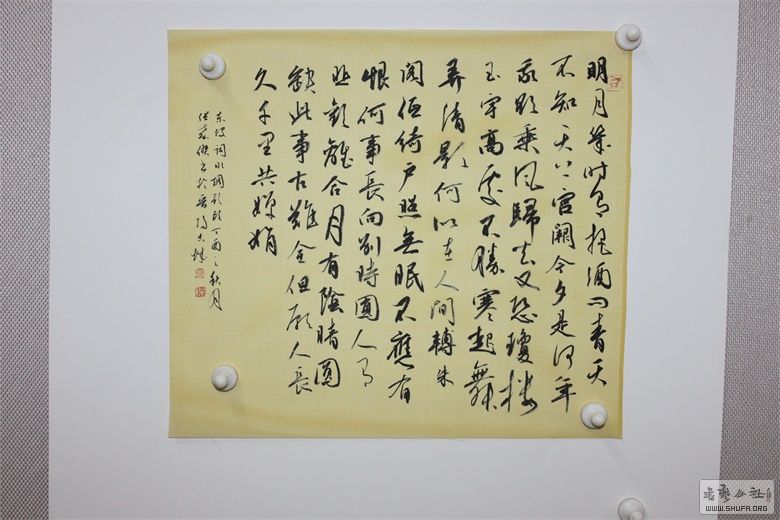 明月幾时有把酒问青天
不知天上宫闕今夕是何年
我欲乘风歸去又恐瓊楼
玉宇高處不勝寒起舞
弄清影何似在人间轉朱
阁低绮户照無眠不應有
恨何事長向别時圓人有
悲歡離合月有陰晴圓
缺此事古難全但願人長
久千里共嬋娟
东坡词水调歌頭丁酉之秋月
書於岳陽古城
书艺公社
WWW.SHUFR.ORG